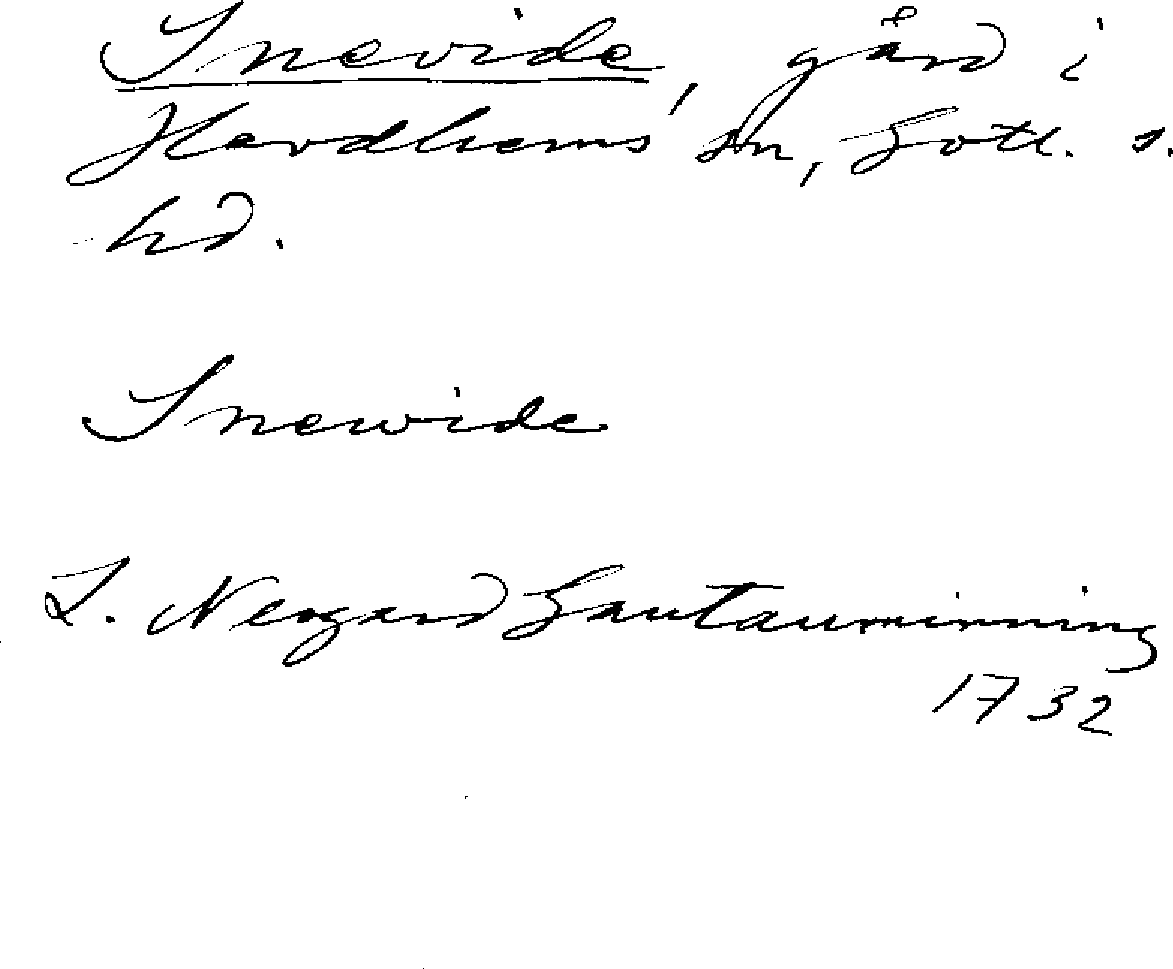 Snevide, gård i
Havdhems sn, Gotl. s.
hd.
Snewide
L. Nergard Gautauminning
1732